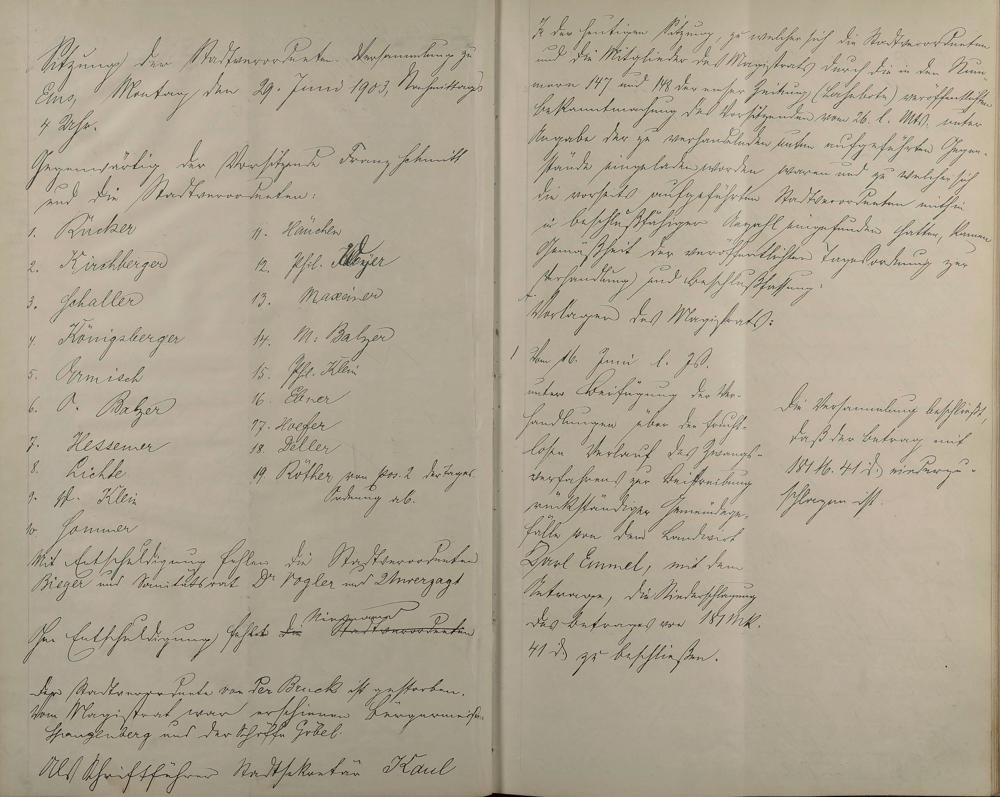 Sitzung der Stadtverordneten-Versammlung zu
Ems, Montag den 29. Juni 1903, Nachmittags
4 Uhr.
Gegenwärtig der Vorsitzende Franz Schmitt
und die Stadtverordneten:
1. Rücker
2. Kirchberger
3. Schaller
4. Königsberger
5. Ermisch
6. O. Balzer
7. Hessemer
8. Lichte
9. W. Klein
10. Sommer
11. Häuchen
12. Phil. Weyer
13. Maxeiner
14. M. Balzer
15. Phil. Klein
16. Ebner
17. Hoefer
18. Deller
19. Röther von pos. 2 der Tages
Ordnung ab.
Mit Entschuldigung fehlen die Stadtverordneten
Bieger und Sanitätsrat Dr Vogler und Unverzagt
Niemand
Ohne Entschuldigung fehlt die Stadtverordneten
Der Stadtverordnete von der Bruck ist gestorben.
Vom Magistrat war erschienen Bürgermeister
Spangenberg und der Schöffe Göbel.
Als Schriftführer Stadtsekretär Kaul
In der heutigen Sitzung, zu welcher sich die Stadtverordneten
und die Mitglieder des Magistrats durch die in den Num-
mern 147 und 148 der Emser Zeitung (Lahnbote) veröffentlichte
Bekanntmachung des Vorsitzenden vom 26. l. Mts. unter
Angabe der zu verhandelnden unten aufgeführten Gegen-
stände eingeladen worden waren und zu welcher sich
die vorseits aufgeführten Stadtverordneten mithin
in beschlußfähiger Anzahl eingefunden hatten, kamen
Gemäßheit der veröffentlichten Tagesordnung zur
Verhandlung und Beschlußfassung:
Vorlagen des Magistrats:
1 Vom 16. Juni l. Js.
unter Beifügung der Ver-
handlungen über den frucht-
losen Verlauf des Zwangs-
verfahrens zur Beitreibung
rückständiger Gemeindege-
fälle von dem Landwirt
Karl Emmel, mit dem
Antrage, die Niederschlagung
des Betrages von 181 Mk.
41 d. zu beschließen.
Die Versammlung beschließt,
daß der Betrag mit
181 M. 41 d. niederzu-
schlagen ist.